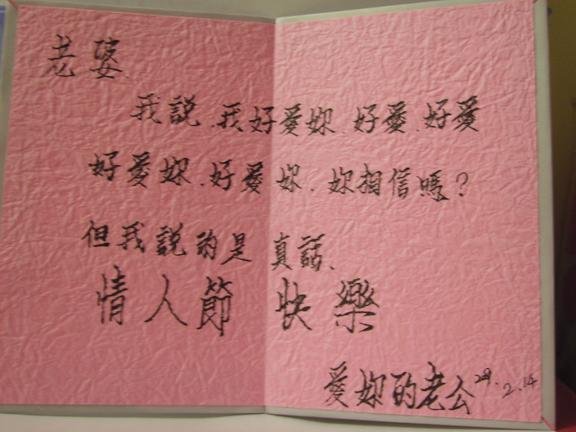 老婆
我說.我好愛妳.好愛.好愛
好愛妳.好愛妳.妳相信嗎?
但我說的是真話.
情人節快樂
愛妳的老公 29.2.14